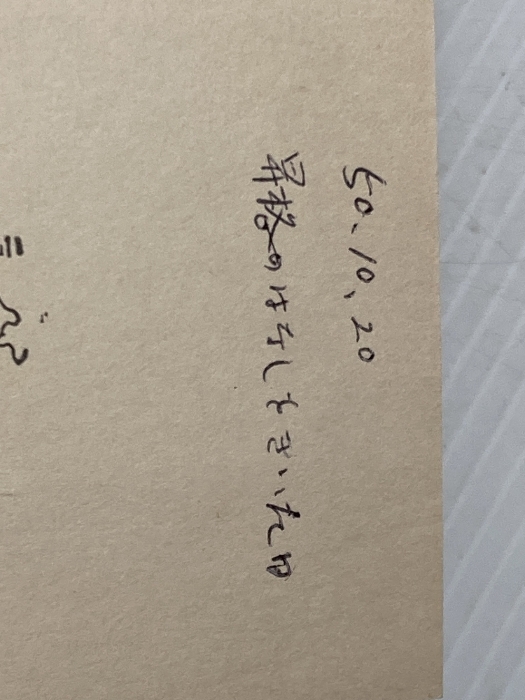 50.10.20
昇格のはなしをきいた日